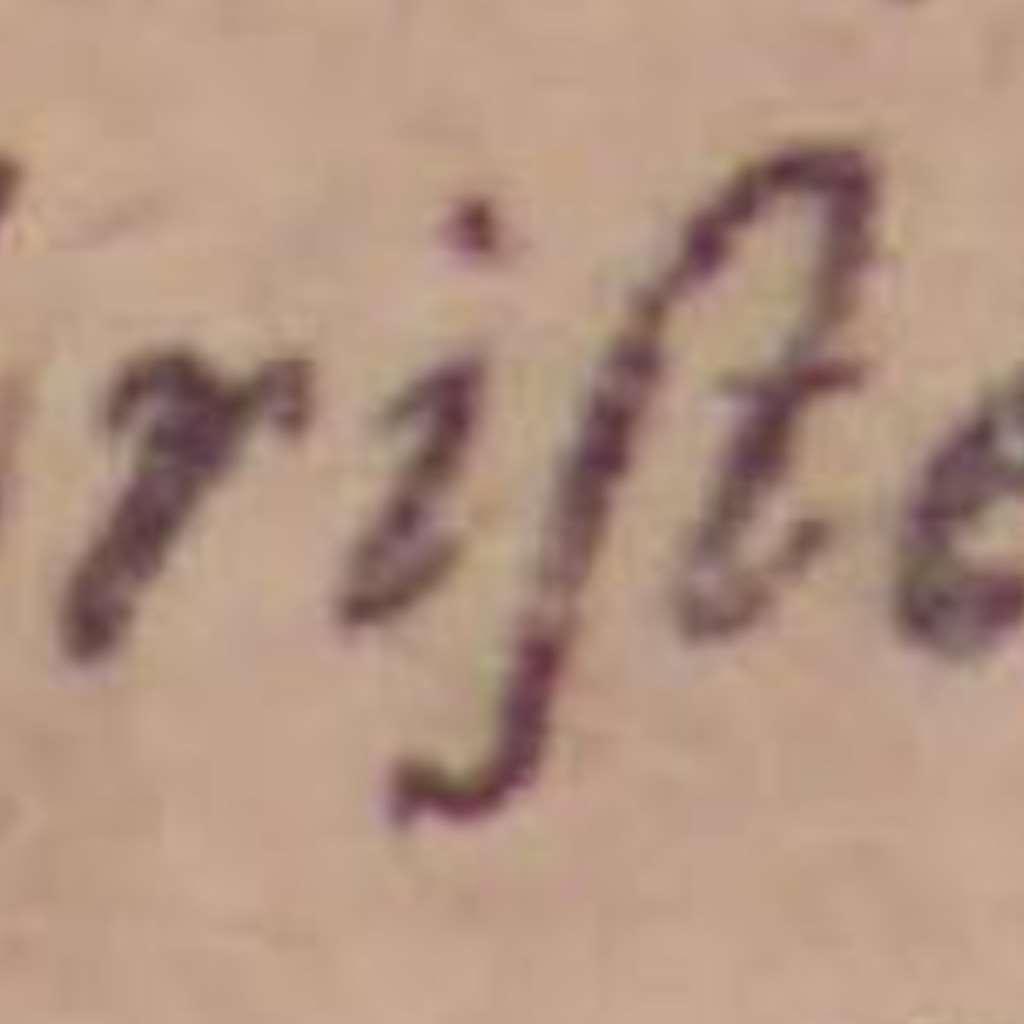 riſte